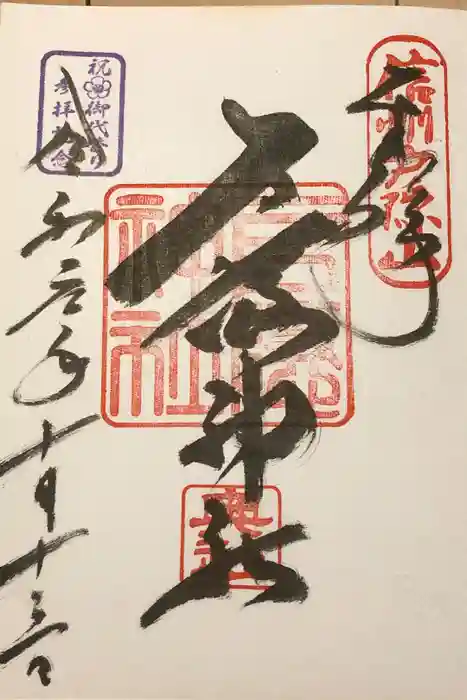 奉拝
信州戸隠山
戸隠神社
戸隠
神社
祝御代替り
参拝記念
令和元年十月十三日